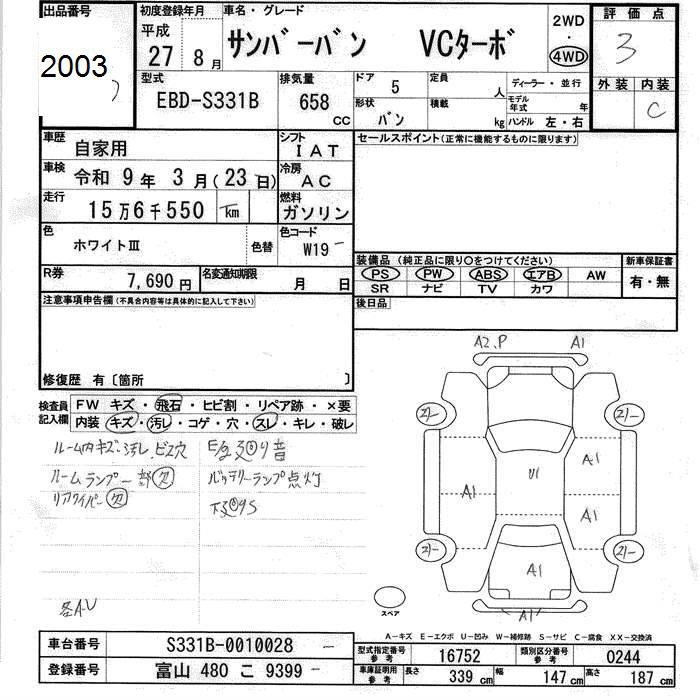 出品番号 初度登録年月 車名・グレード 評価点
2003 平成 27 8月 サンバーバン VCターボ 2WD・4WD 3
型式 排気量 ドア 5 定員 人 ディーラー・並行 外装 内装
EBD-S331B 658 CC 形状 バン 積載 kg モデル年式 年 ハンドル 左・右 C
車歴 自家用 シフト IAT セールスポイント(正常に機能するものに限ります)
車検 令和 9年 3月(23日) 冷房 AC
走行 15万6千550 km 燃料 ガソリン
色 ホワイトⅢ 色替 色コード W19
装備品 (純正品に限り○をつけてください) 新車保証書
R券 7,690円 名変通知期限 月 日 PS PW ABS エアB AW 有・無
SR ナビ TV カワ
注意事項申告欄(不具合内容等は具体的に記入して下さい) 後日品
修復歴 有〔箇所 〕
A2.P A1
検査員記入欄 FW キズ・飛石・ヒビ割・リペア跡・×要
内装 キズ・汚レ・コゲ・穴・スレ・キレ・破レ
ルーム内キズ・汚レ、ビス穴 E/g廻り音
ルームランプ一部欠 バッテリーランプ点灯
リアワイパー欠 下廻りS
各A.U
A1 U1 A1
A1
A1
A1
スペア
A-キズ E-エクボ U-凹み W-補修跡 S-サビ C-腐食 XX-交換済
車台番号 S331B-0010028 型式指定番号 参考 16752 類別区分番号 参考 0244
登録番号 富山 480 こ 9399 車庫証明用 参考 長さ 339 cm 幅 147 cm 高さ 187 cm